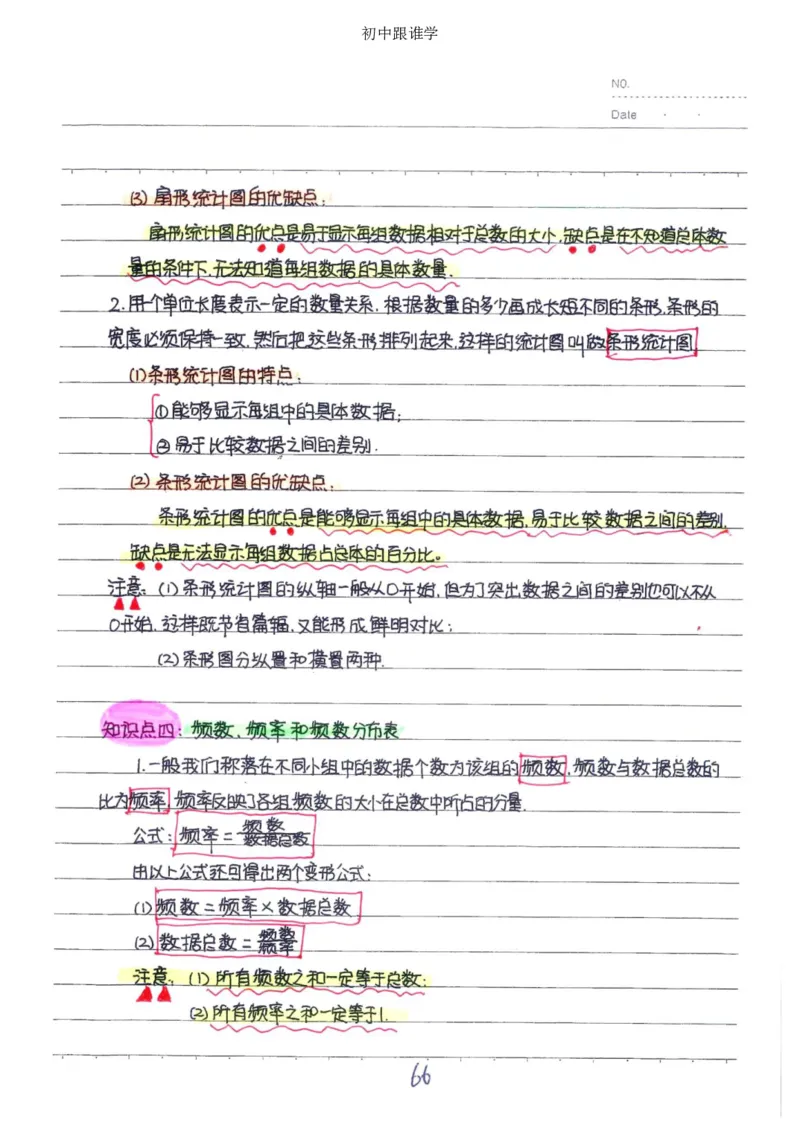 初中跟谁学
NO.
Date
(3) 扇形统计图的优缺点:
扇形统计图的优点是易于显示每组数据相对于总数的大小,缺点是在不知道总体数
量的条件下,无法知道每组数据的具体数量.
2.用个单位长度表示一定的数量关系,根据数量的多少画成长短不同的条形,条形的
宽度必须保持一致,然后把这些条形排列起来,这样的统计图叫做条形统计图.
(1)条形统计图的特点:
①能够显示每组中的具体数据;
②易于比较数据之间的差别.
(2) 条形统计图的优缺点:
条形统计图的优点是能够显示每组中的具体数据,易于比较数据之间的差别,
缺点是无法显示每组数据占总体的百分比。
注意:(1)条形统计图的纵轴一般从0开始,但为了突出数据之间的差别也可以不从
0开始,这样既节省篇幅,又能形成鲜明对比;
(2)条形图分纵置和横置两种.
知识点四:频数、频率和频数分布表
1.一般我们称落在不同小组中的数据个数为该组的频数,频数与数据总数的
比为频率.频率反映了各组频数的大小在总数中所占的分量.
公式:频率=频数/数据总数
由以上公式还可得出两个变形公式:
(1)频数=频率×数据总数
(2)数据总数=频数/频率
注意:(1)所有频数之和一定等于总数;
(2)所有频率之和一定等于1.
66